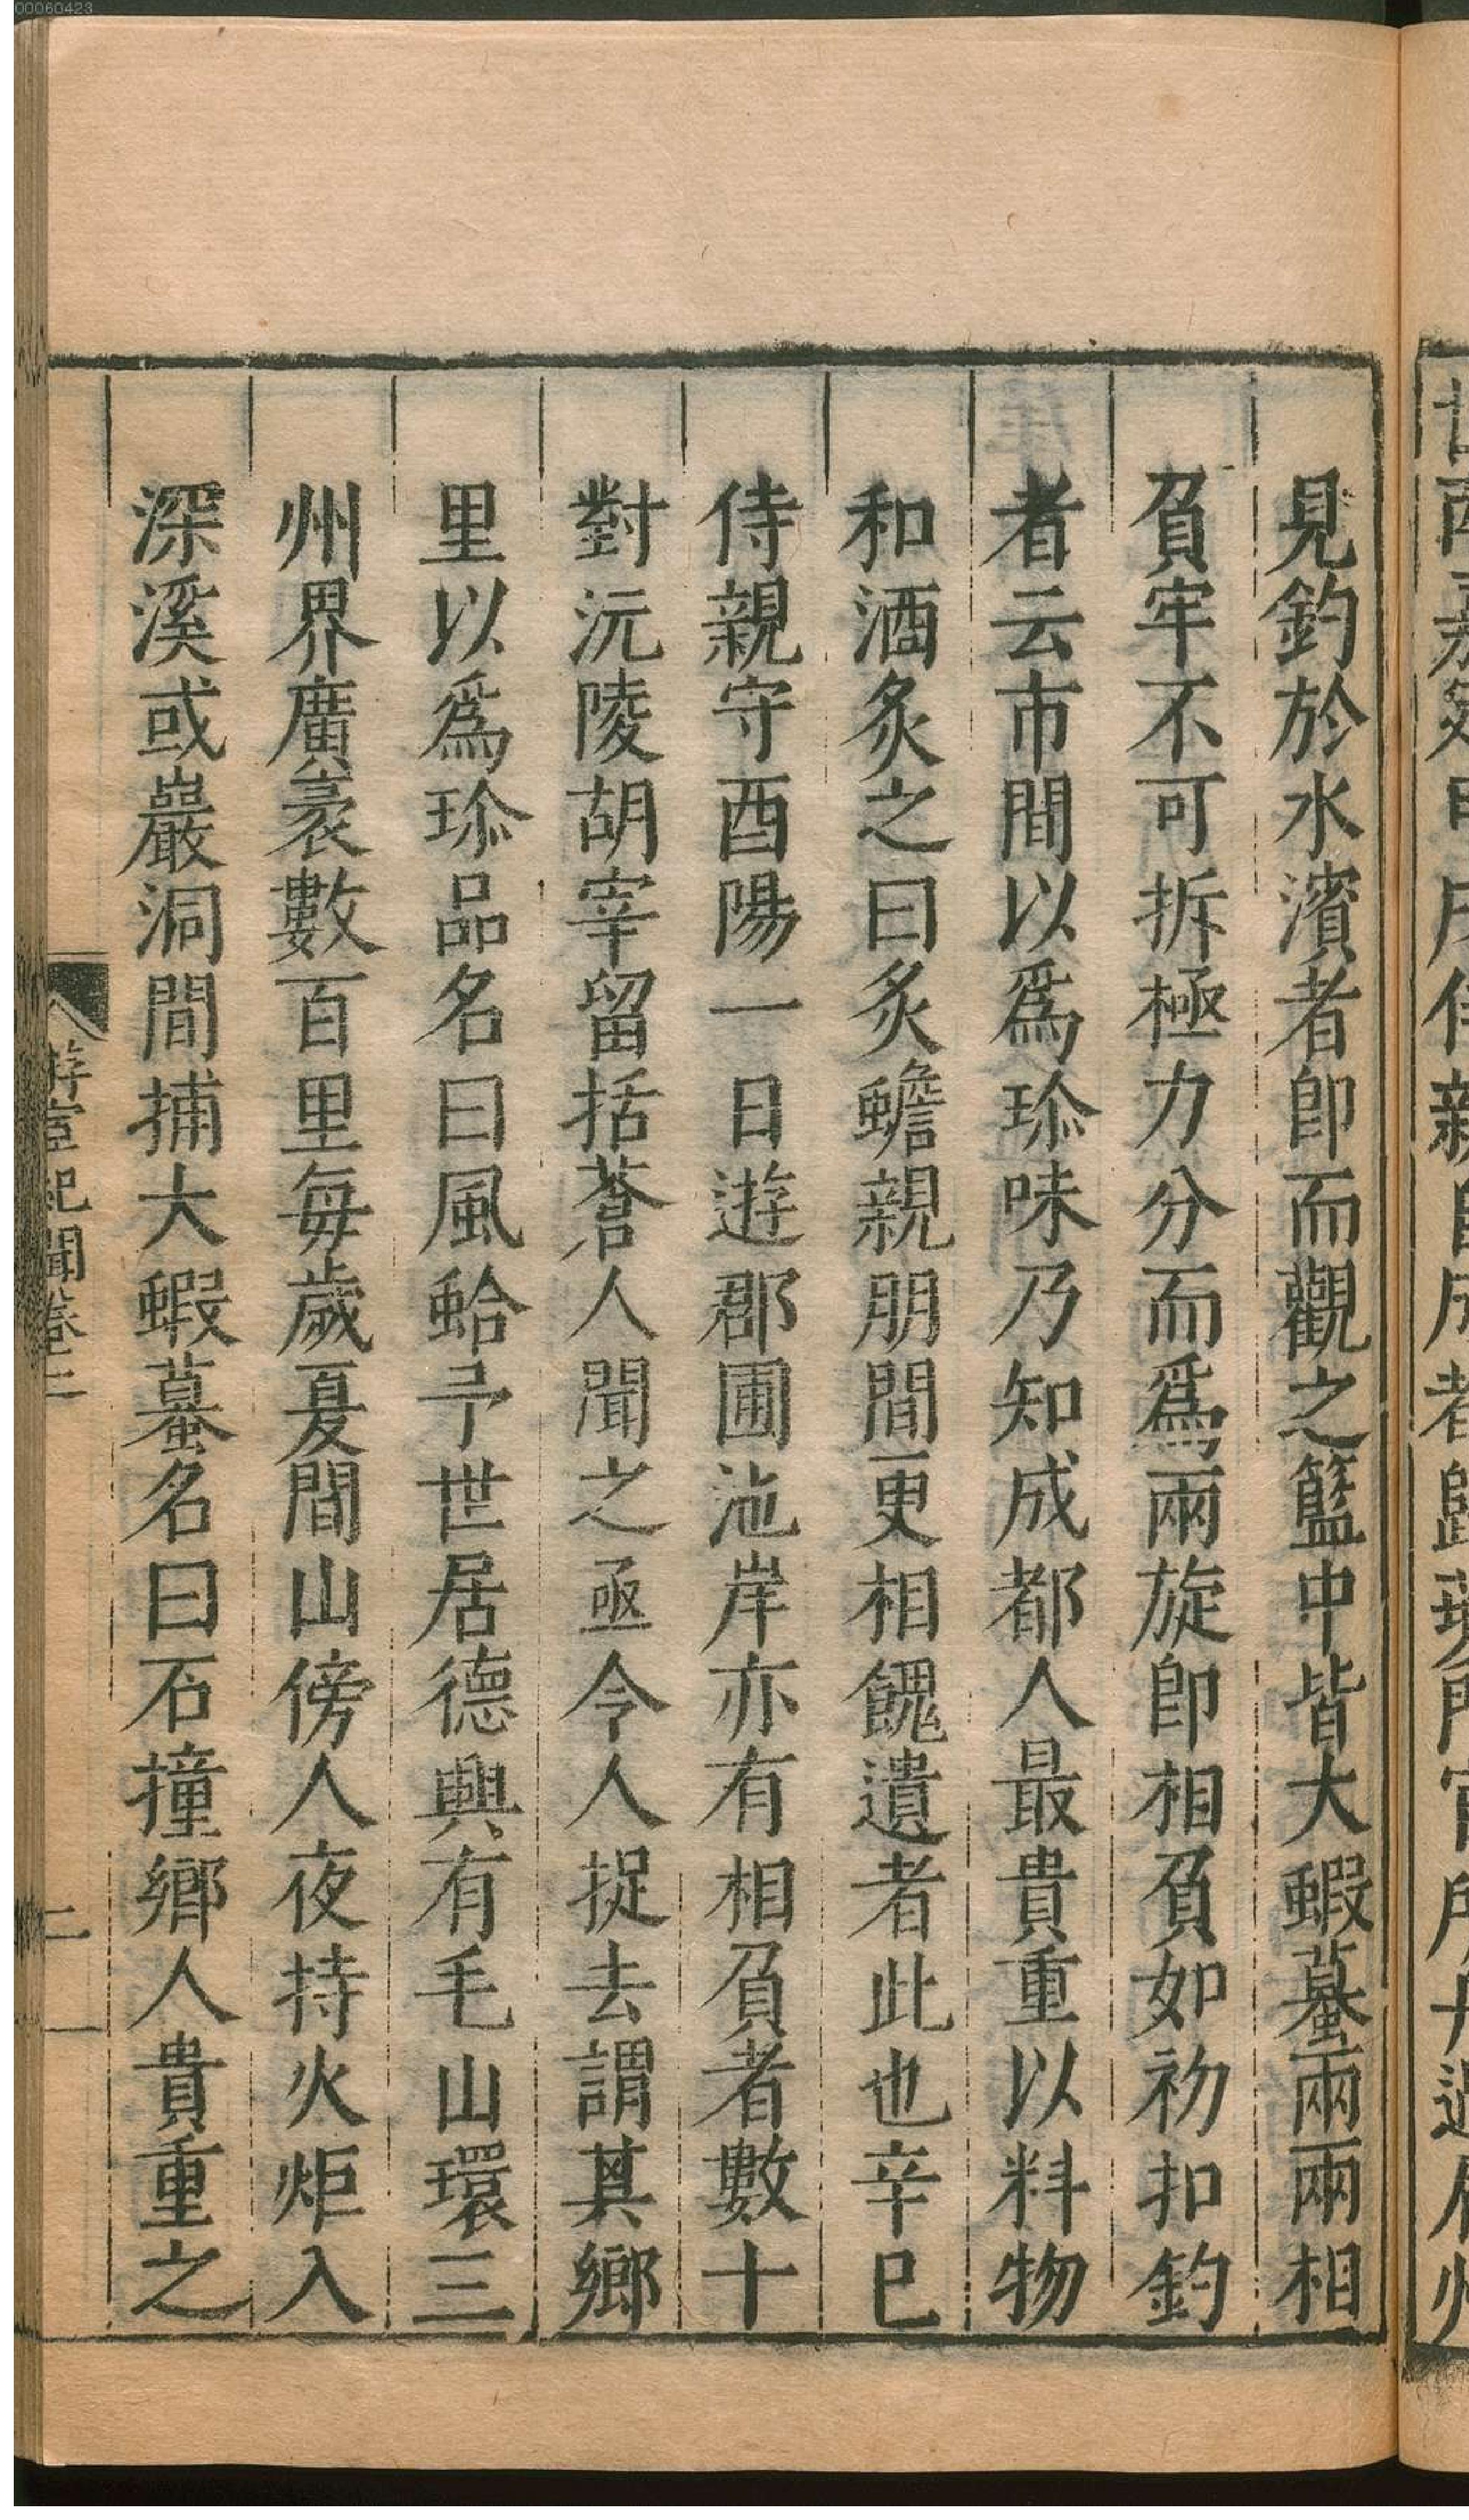 見釣於水濱者卽而觀之籃中皆大蝦蟇兩兩相
負牢不可拆極力分而爲兩旋卽相負如初扣釣
者云市間以爲珎味乃知成都人最貴重以料物
和酒炙之曰炙蟾親朋間更相餽遺者此也辛巳
侍親守酉陽一日遊郡圃池岸亦有相負者數十
對沅陵胡宰留括蒼人聞之亟令人捉去謂其鄉
里以爲珎品名曰風蛤予世居德興有毛山環三
州界廣袤數百里每歲夏間山傍人夜持火炬入
深溪或巖洞間捕大蝦蟇名曰石撞鄉人貴重之
游宦紀聞卷二
二
00060423